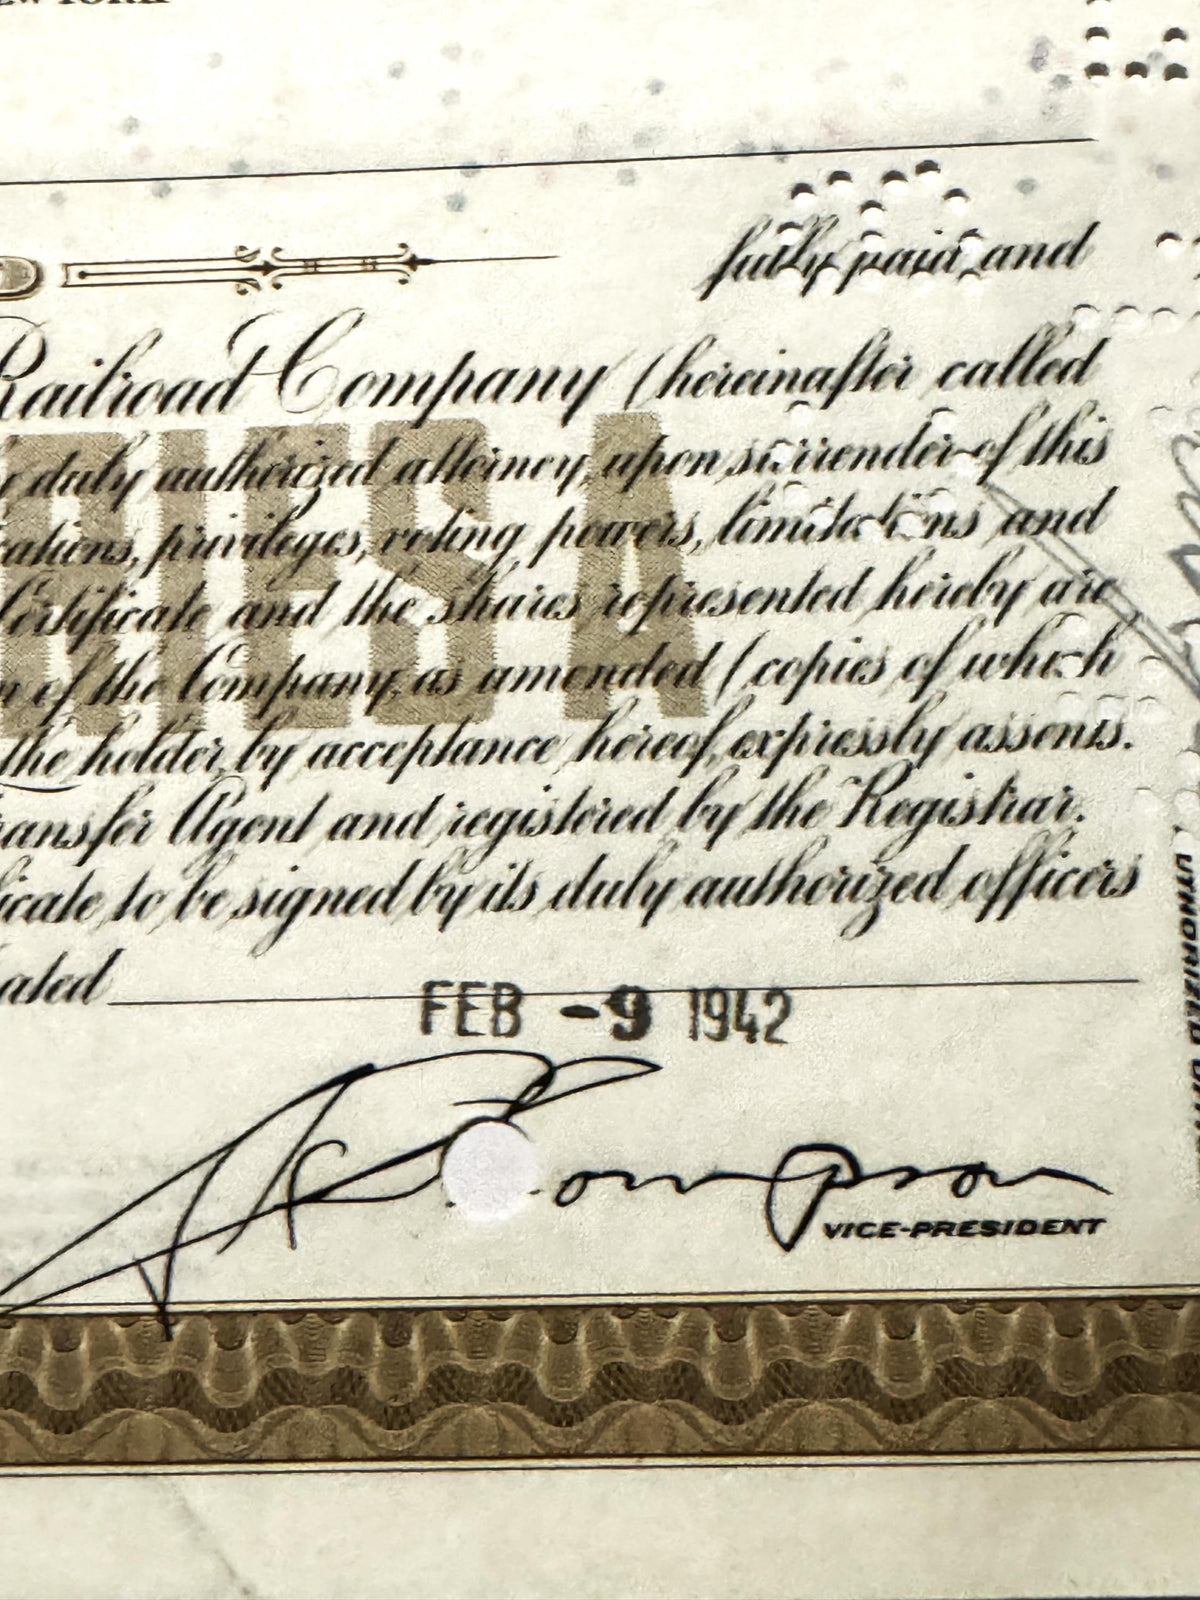 fully paid and
Railroad Company (hereinafter called
duly authorized attorney, upon surrender of this
privileges, voting powers, limitations and
Certificate and the shares represented hereby are
of the Company, as amended (copies of which
the holder, by acceptance hereof, expressly assents.
Transfer Agent and registered by the Registrar.
to be signed by its duly authorized officers
SERIES A
FEB -9 1942
Thompson
VICE-PRESIDENT
UTHORIZED